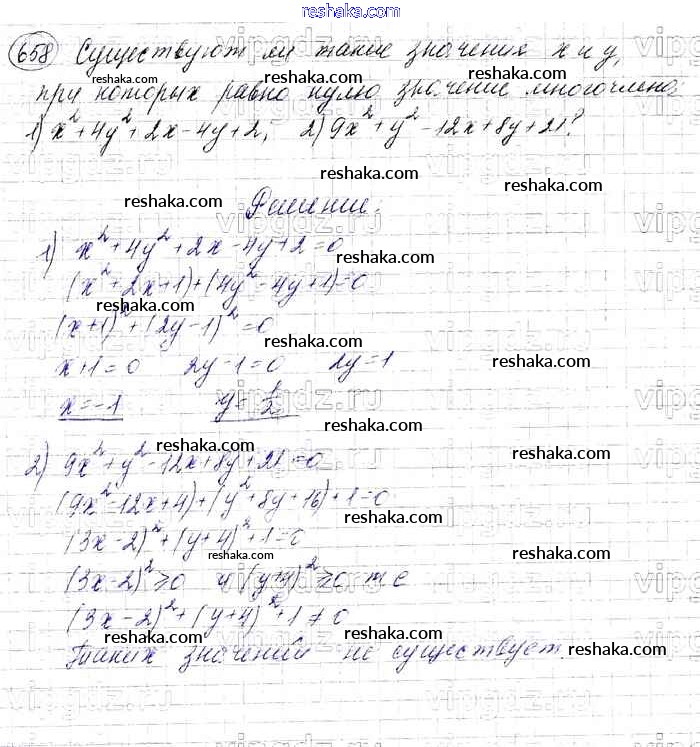 reshaka.com
658 Существуют ли такие значения x и y,
reshaka.com reshaka.com reshaka.com
при которых равно нулю значение многочлена:
1) x²+4y²+2x-4y+2; 2) 9x²+y²-12x+8y+21?
reshaka.com reshaka.com
reshaka.com reshaka.com
vipgdz.ru
Решение.
reshaka.com
1) x²+4y²+2x-4y+2=0
reshaka.com
(x²+2x+1)+(4y²-4y+1)=0
reshaka.com
(x+1)²+(2y-1)²=0
reshaka.com
vipgdz.ru
x+1=0 2y-1=0 2y=1
reshaka.com
x=-1 y=1/2
reshaka.com
reshaka.com
2) 9x²+y²-12x+8y+21=0
reshaka.com
vipgdz.ru
(9x²-12x+4)+(y²+8y+16)+1=0
reshaka.com
(3x-2)²+(y+4)²+1=0
reshaka.com
(3x-2)²≥0 и (y+4)²≥0 т.е
reshaka.com
(3x-2)²+(y+4)²+1≠0
reshaka.com reshaka.com reshaka.com
Таких значений не существует.